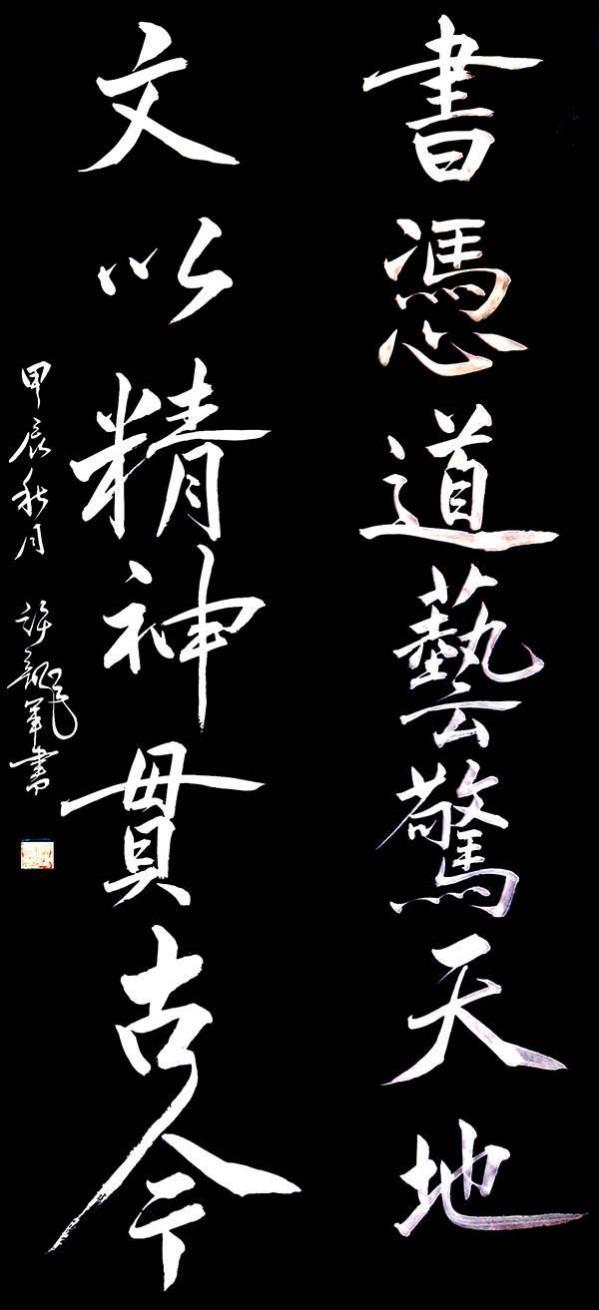 書憑道藝驚天地
文以精神貫古今
甲辰秋月 許龍軍書